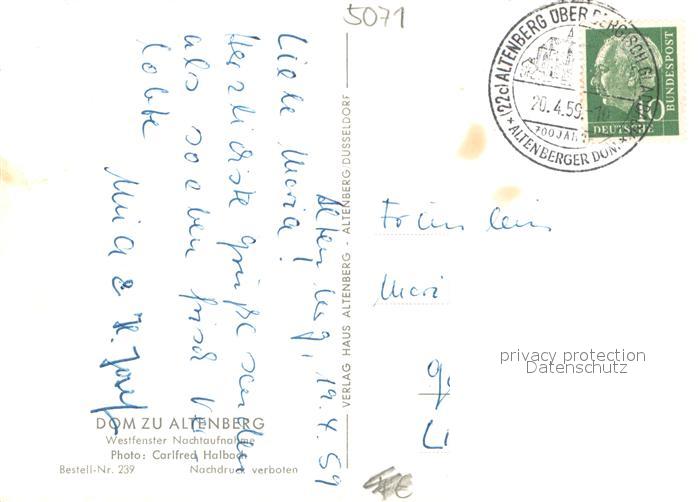 5071
(22c) ALTENBERG ÜBER BERGISCH GLADBACH
20.4.59.-10
700 JAHRE
* ALTENBERGER DOM *
DEUTSCHE
BUNDESPOST
Altenberg, 19.4.59
Liebe Maria!
Herzlichste Grüße senden
als soeben frisch Ver-
lobte
Mia & H. Josef
VERLAG HAUS ALTENBERG - ALTENBERG/DÜSSELDORF
Fräulein
Mari
privacy protection
Datenschutz
DOM ZU ALTENBERG
Westfenster Nachtaufnahme
Photo: Carlfred Halbach
Bestell-Nr. 239 Nachdruck verboten
4€